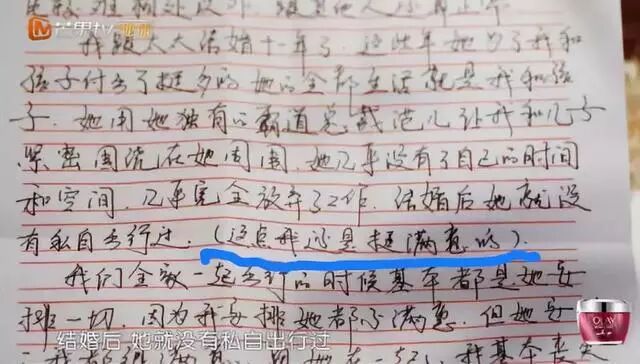 难相处以外，跟其他人
芒果TV 原创
我跟太太结婚十一年了，这些年她为了我和
孩子付出了挺多的，她的全部生活就是我和孩
子，她用她独有的霸道总裁范儿让我和儿子
紧密围绕在她周围，她几乎没有了自己的时间
和空间，几乎完全放弃了工作，结婚后她就没
有私自出行过，（这点我还是挺满意的）。
我们全家一起出行的时候基本都是她安
排一切，因为我安排她都不满意，但她安
结婚后 她就没有私自出行过
OLAY